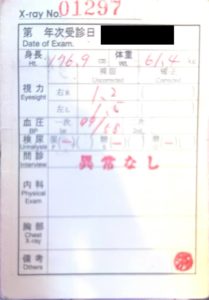 X-ray No. 01297
第 年次受診日
Date of Exam.
身長 176.9 cm 体重 61.4
Ht. Wt.
裸眼 矯正
Uncorrected Corrected
視力 右R 1.2
Eyesight 左L
血圧 一次
BP
検尿 (－) (－) (－)
Urinalysis
問診
Interview 異常なし
内科
Physical
Exam
胸部
Chest
X-ray
備考
Others